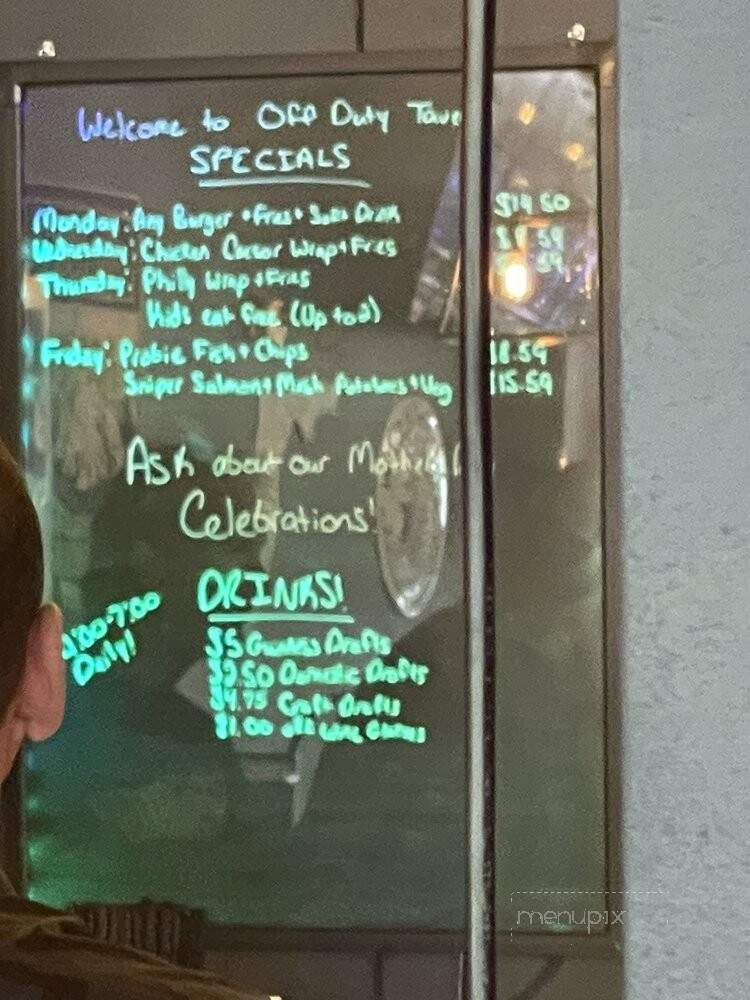 Welcome to Off Duty Tave
SPECIALS
Monday: Any Burger + Fries + Soft Drink $14.50
Wednesday: Chicken Caesar Wrap + Fries $9.59
Thursday: Philly Wrap + Fries .59
Kids eat free (Up to 2)
Friday: Probie Fish + Chips 18.59
Sniper Salmon + Mash Potatoes + Veg $15.59
Ask about our Mother's
Celebrations!
DRINKS!
:00-7:00
Daily!
$5 Guinness Drafts
$2.50 Domestic Drafts
$4.75 Craft Drafts
$1.00 off Wine Glasses
menupix